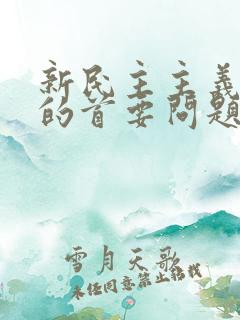 新民主主义
的首要问题
雪月天歌
未经同意禁止转载